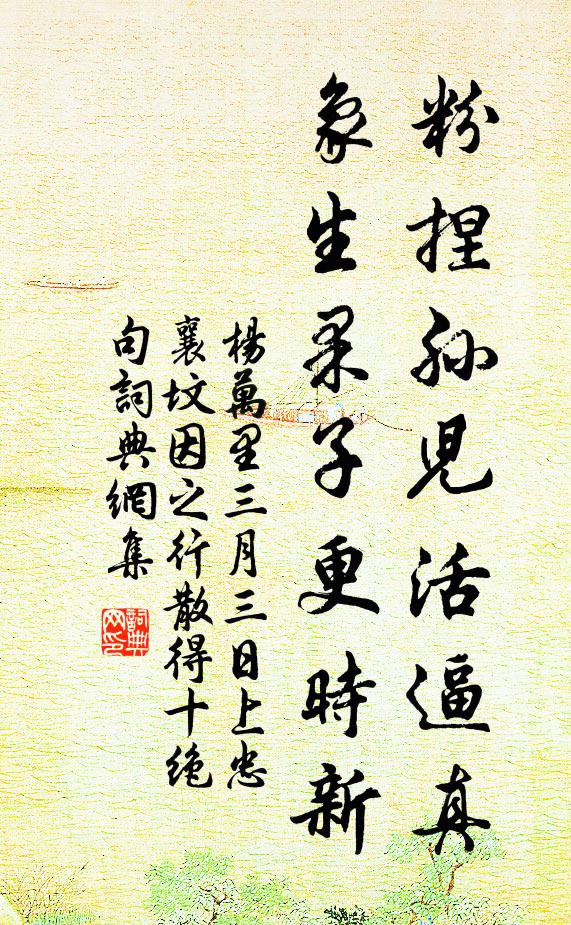 粉捏孫兒活逼真
象生果子更時新
楊萬里三月三日上忠
襄坟因之行散得十绝
句詞典網集
詞典
网印